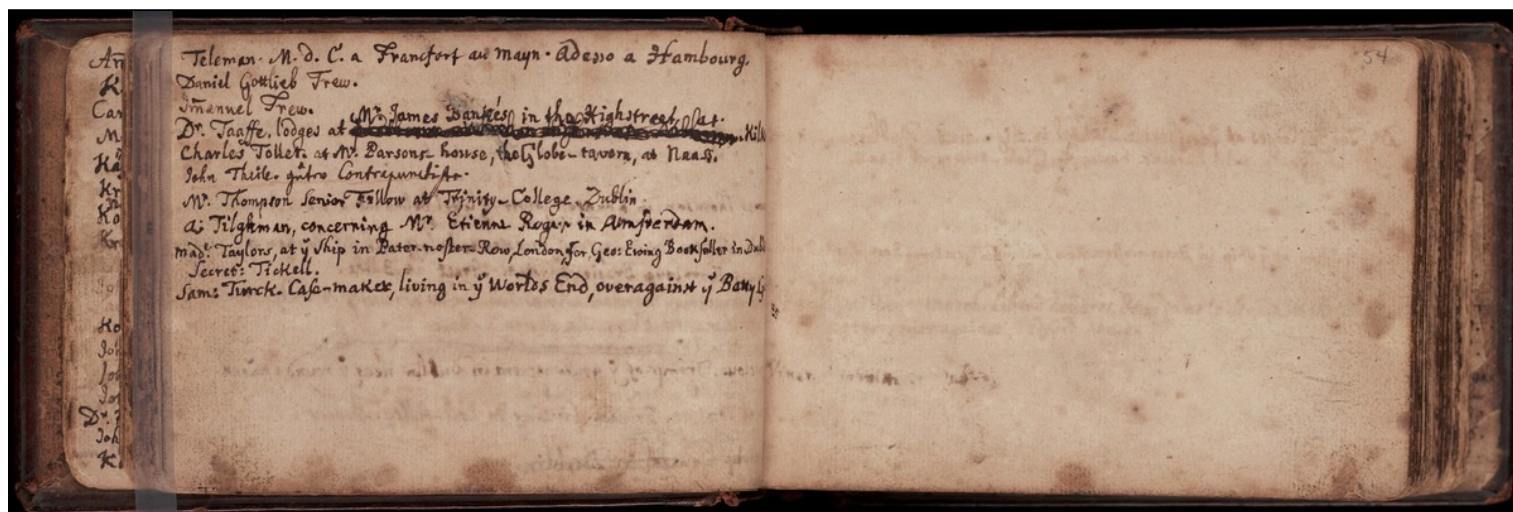 An
K.
Car
M
Kr
Ko
Kr
Ko
Joh
Joh
Jo
Dr.
Joh
K.
Teleman. M. d. C. a Francfort au mayn. Adesso a Hambourg.
Daniel Gottlieb Trew.
Im̄anuel Trew.
Mr. James Bankes in the Highstreet, at.
Dr. Taaffe. lodges at Kilk
Charles Tollet. at Mr. Parsons house, the Globe-tavern, at Naas.
John Theile. Contrapunctiste.
Mr. Thompson Senior Fellow at Trinity-College. Dublin
a: Tilghman, concerning Mr. Etienne Roger in Amsterdam.
mad.e Taylors, at ÿ Ship in Pater-noster Row, London, for Geo: Ewing Bookseller in Dubl
Secret: Tickell.
Sam: Turck. Case-maker, living in ÿ Worlds End, overagainst ÿ
54